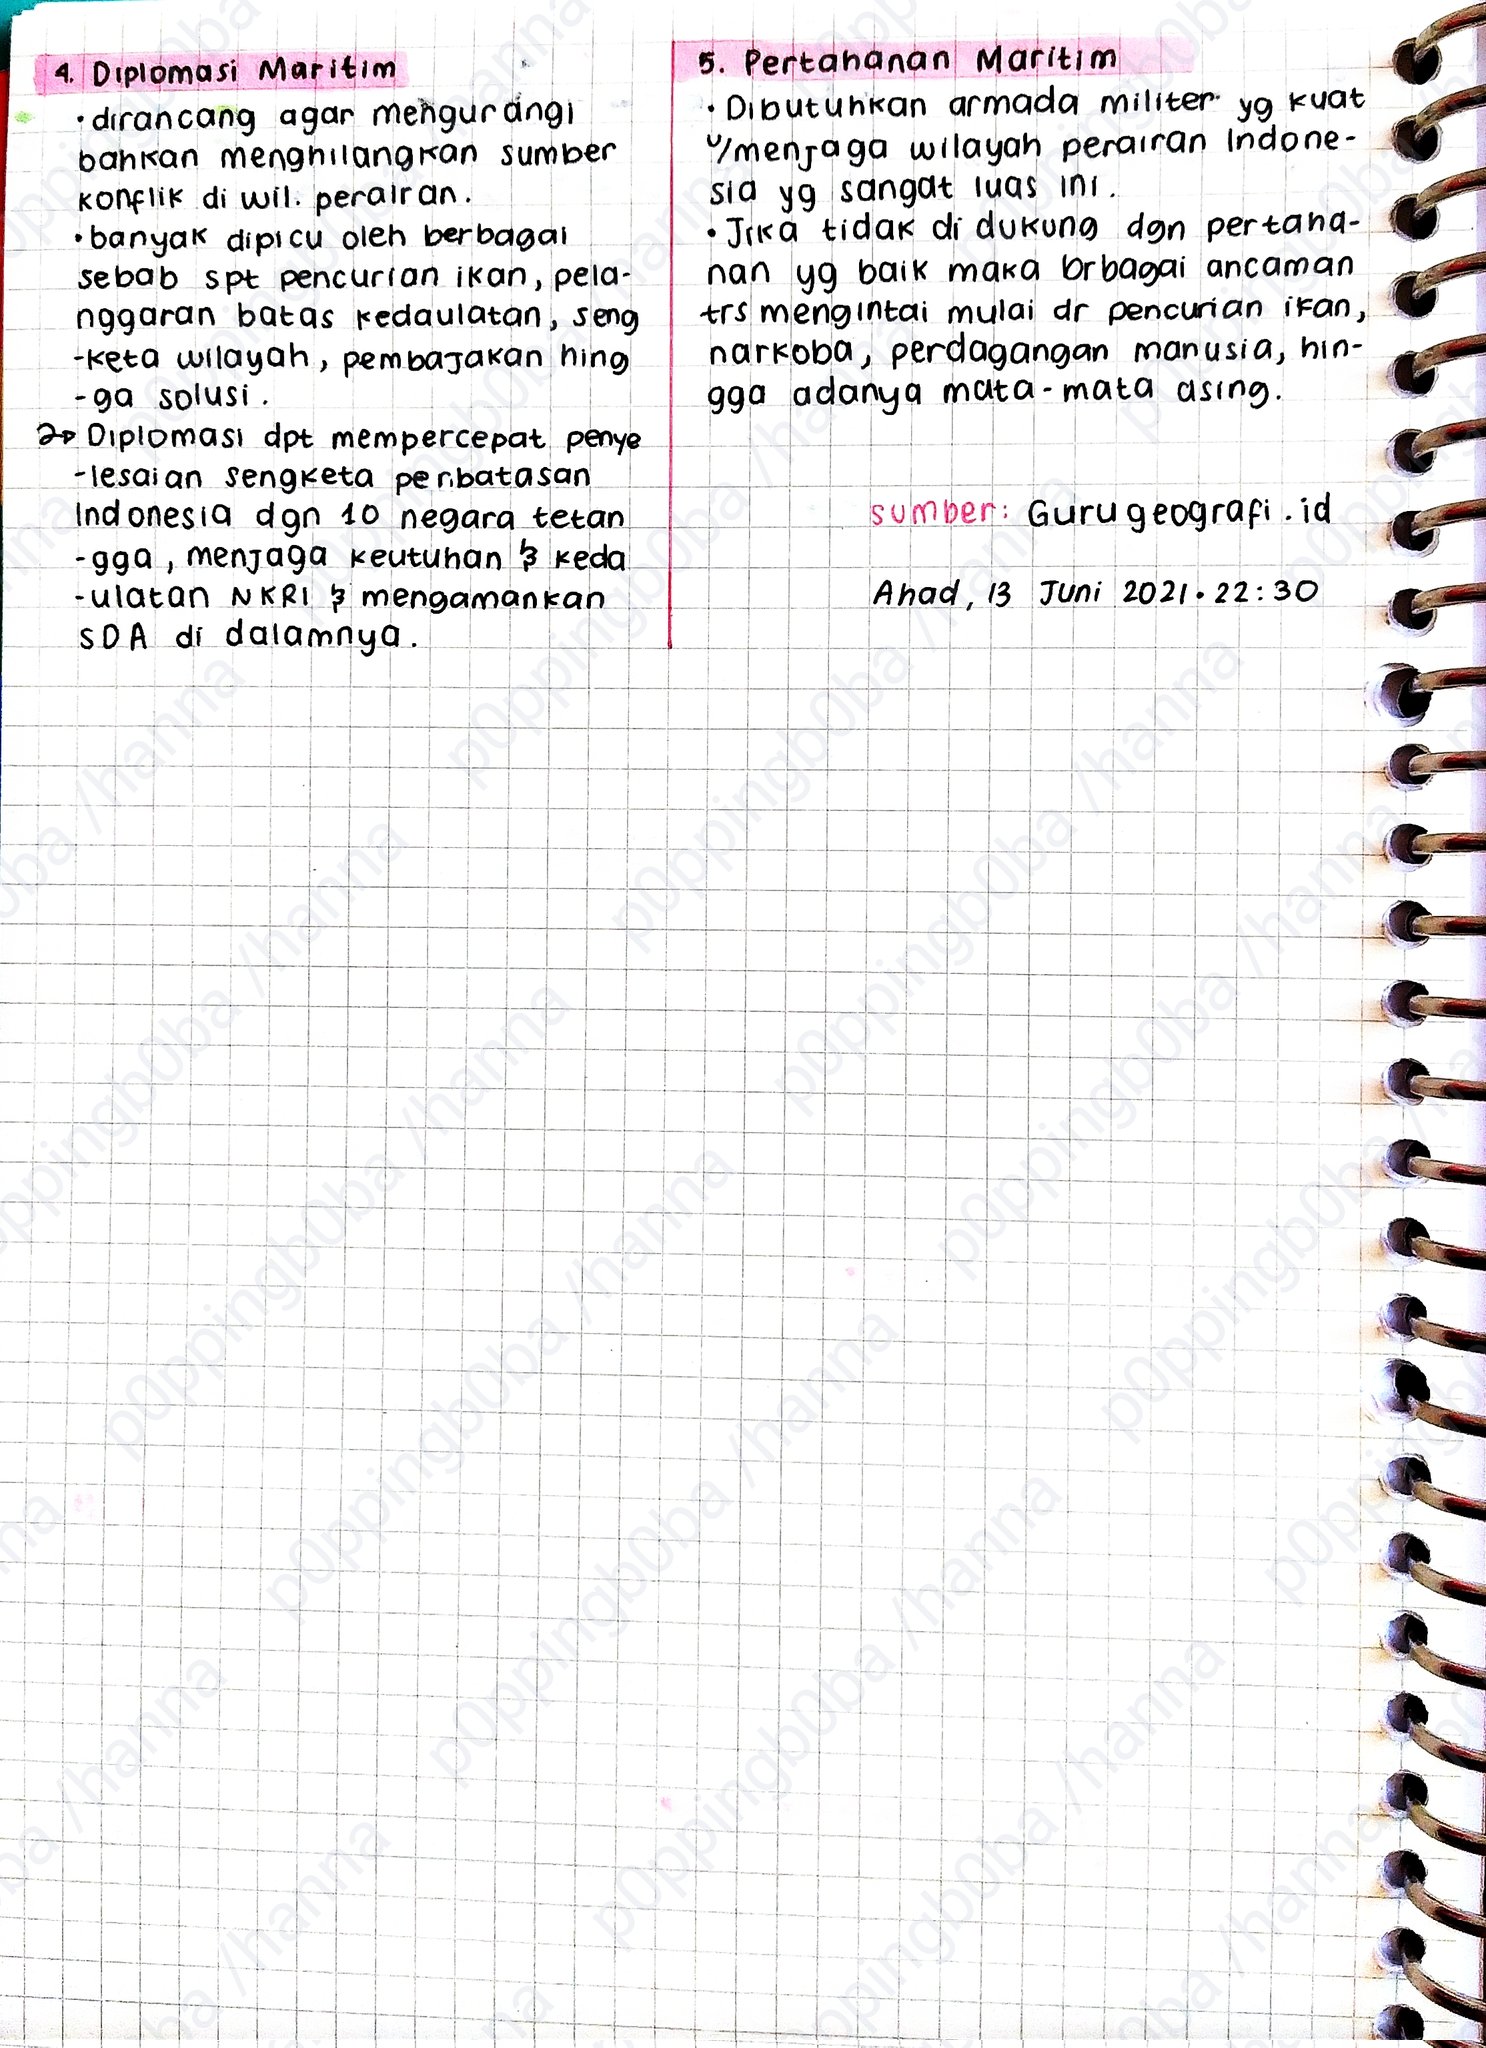 4. Diplomasi Maritim
• dirancang agar mengurangi
bahkan menghilangkan sumber
konflik di wil. perairan.
• banyak dipicu oleh berbagai
sebab spt pencurian ikan, pela-
nggaran batas kedaulatan, seng
-keta wilayah, pembajakan hing
-ga solusi.
Diplomasi dpt mempercepat penye
-lesaian sengketa perbatasan
Indonesia dgn 10 negara tetan
-gga, menjaga keutuhan & keda
-ulatan NKRI & mengamankan
SDA di dalamnya.
5. Pertahanan Maritim
• Dibutuhkan armada militer yg kuat
u/menjaga wilayah perairan Indone-
sia yg sangat luas ini.
• Jika tidak di dukung dgn pertaha-
nan yg baik maka brbagai ancaman
trs mengintai mulai dr pencurian ikan,
narkoba, perdagangan manusia, hin-
gga adanya mata-mata asing.
sumber: Gurugeografi.id
Ahad, 13 Juni 2021 • 22:30
p0ppingb0ba /hanna